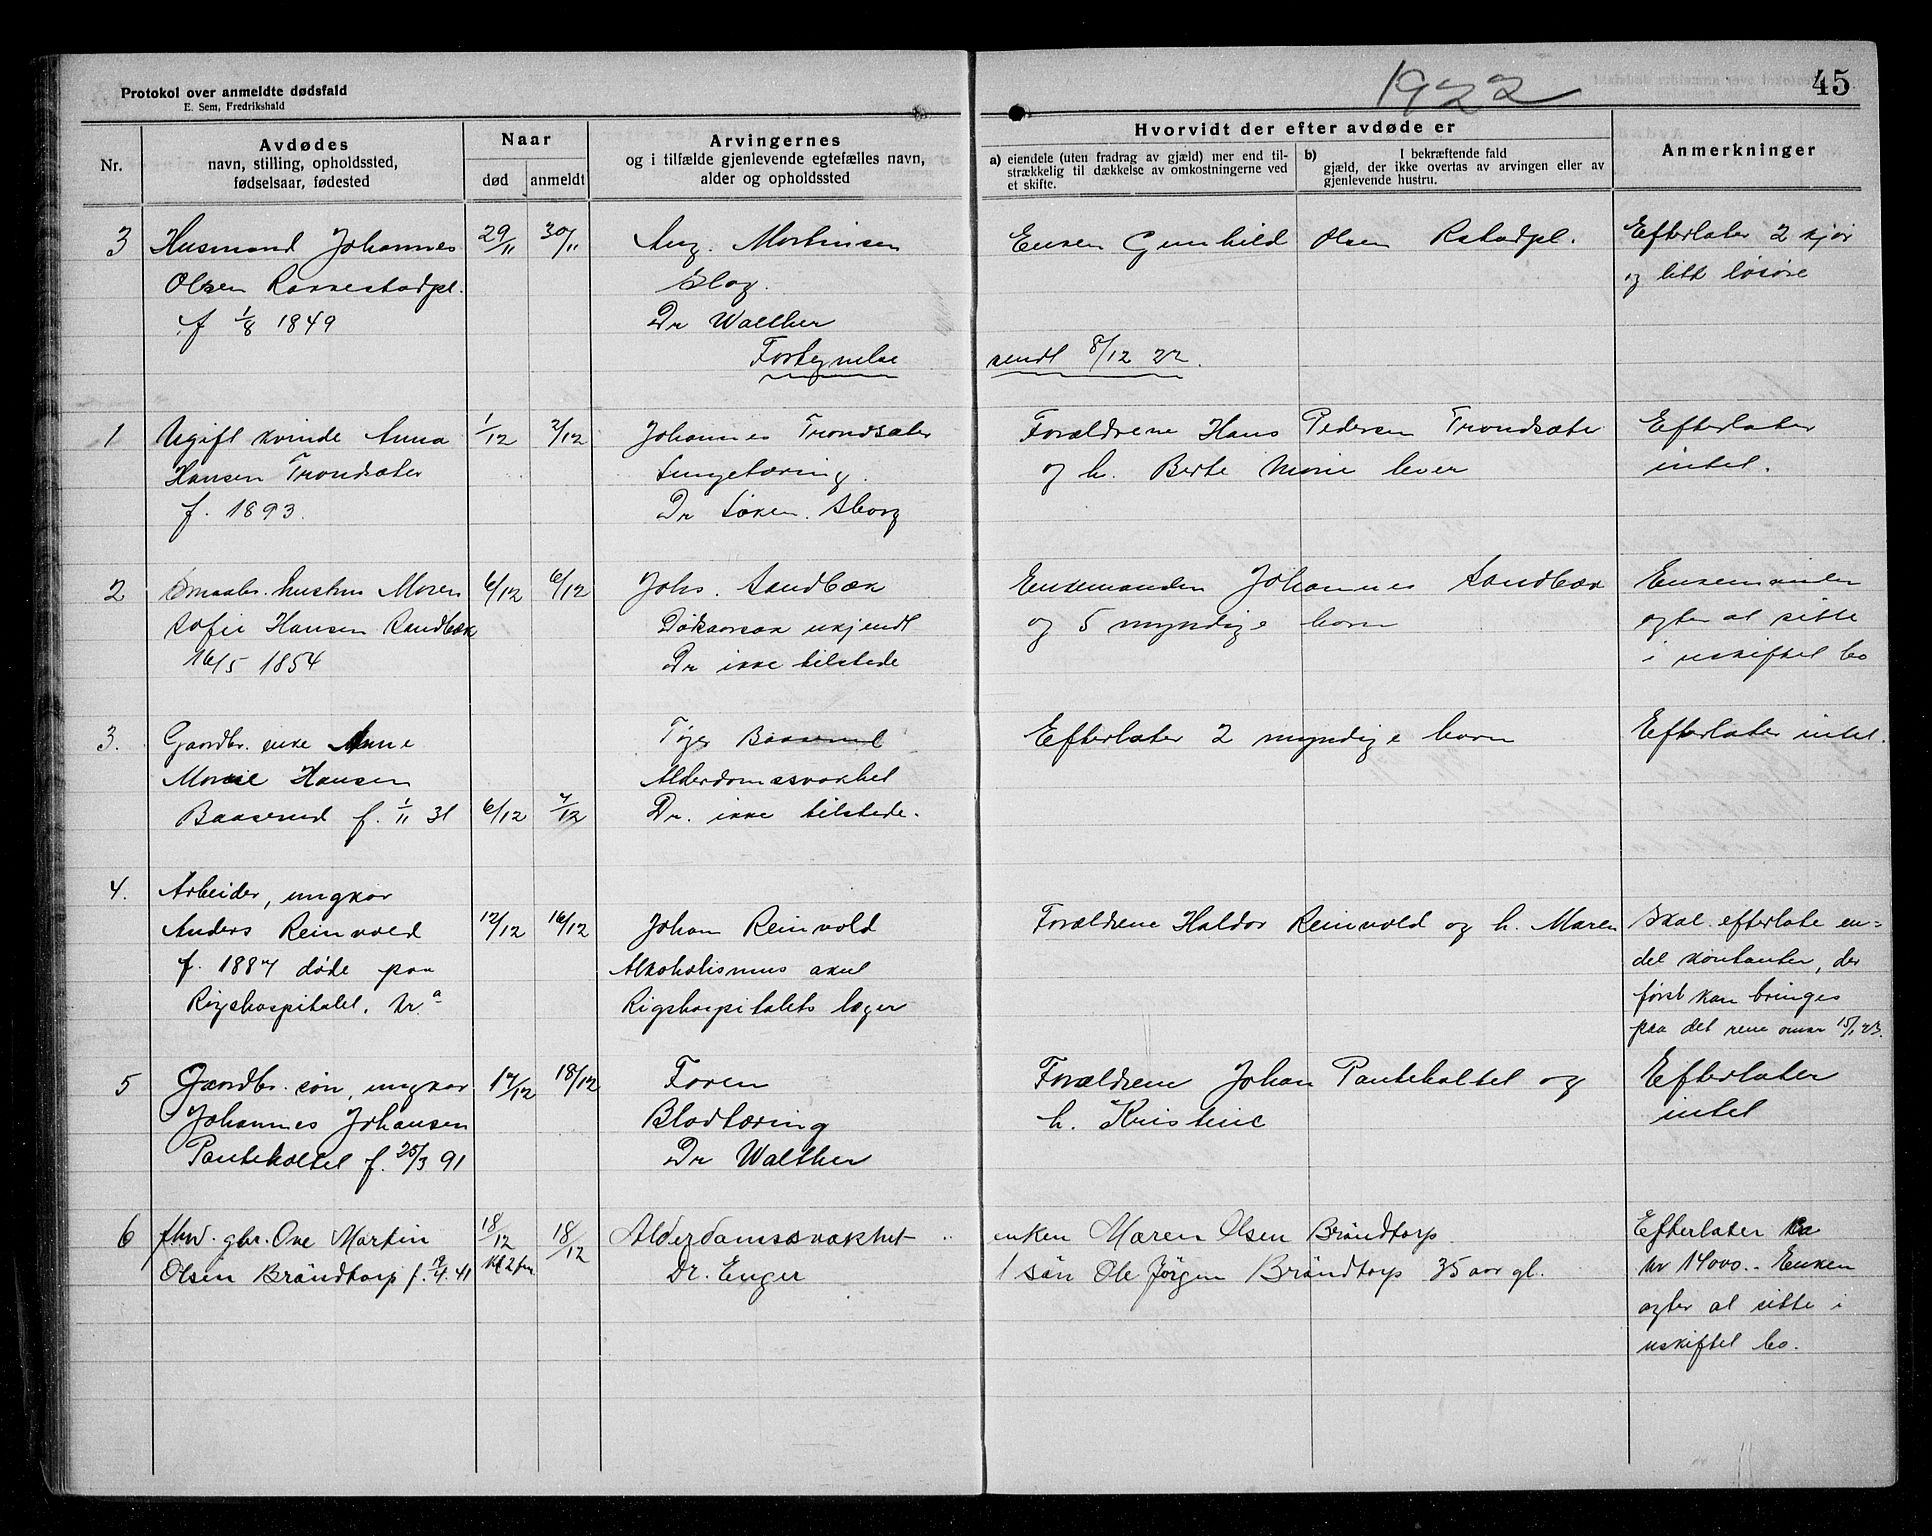 Protokol over anmeldte dødsfald
E. Sem, Fredrikshald
1922
45
Nr.
Avdødes
navn, stilling, opholdssted,
fødselsaar, fødested
Naar
død
anmeldt
Arvingernes
og i tilfælde gjenlevende egtefælles navn,
alder og opholdssted
Hvorvidt der efter avdøde er
a) eiendele (uten fradrag av gjæld) mer end til-
strækkelig til dækkelse av omkostningerne ved
et skifte.
b) I bekræftende fald
gjæld, der ikke overtas av arvingen eller av
gjenlevende hustru.
Anmerkninger
3 Husmand Johannes 29/11 30/11 Aug. Mortinsen Enken Gunhild Olsen Rstadpl. Efterlater 2 kjør
Olsen Rakkestadpl. Slag. og litt løsøre
f 1/8 1849 Dr Walther
Fortegnelse sendt 8/12 22.
1 Ugift kvinde Anna 1/12 2/12 Johannes Trondsæter Forældrene Hans Pedersen Trondsæte Efterlater
Hansen Trondsæter Lungetæring. og h. Berte Marie lever intet.
f. 1893. Dr Løken. Aborg
2 Smaabr. hustru Maren 6/12 6/12 Johs. Sandbæk Enkemanden Johannes Sandbæk Enkemanden
Sofie Hansen Sandbæk Dødsaarsak ukjendt og 5 myndige barn agter at sitte
16/5 1854 Dr ikke tilstede i uskiftet bo
3. Gaardbr. enke Anne Baaserud Efterlater 2 myndige barn Efterlater intet.
Marie Hansen Alderdomssvakhet
Baaserud f. 1/11 31 6/12 7/12 Dr. ikke tilstede.
4. Arbeider, ungkar
Anders Reinvold 12/12 16/12 Johan Reinvold Forældrene Haldor Reinvold og h. Maren Skal efterlate en-
f. 1887 døde paa Alkoholismus akut del kontanter, der
Rigshospitalet. Kr.a Rigshospitalets læger først kan bringes
paa det rene omkr 15/1 23.
5 Gaardbr. søn, ungkar 17/12 18/12 Faren Forældrene Johan Panteholtet og Efterlater
Johannes Johansen Blodtæring h. Kristine intet
Panteholtet f. 25/3 91 Dr Walther
6 fhv. gbr. Ove Martin 18/12 18/12 Alderdomssvakhet enken Maren Olsen Brändtorp. Efterlater ca
Olsen Brändtorp f. 19/4. 41 Kl 2 fm. Dr. Enger 1 sön Ole Jörgen Brändtorp 35 aar gl. kr 14000.- Enken
agter at sitte i
uskiftet bo.